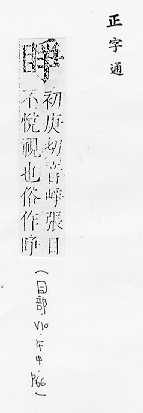 正字通
睜
初庚切音崢張目
不悅視也俗作睁
(目部 V10 午中 P66)